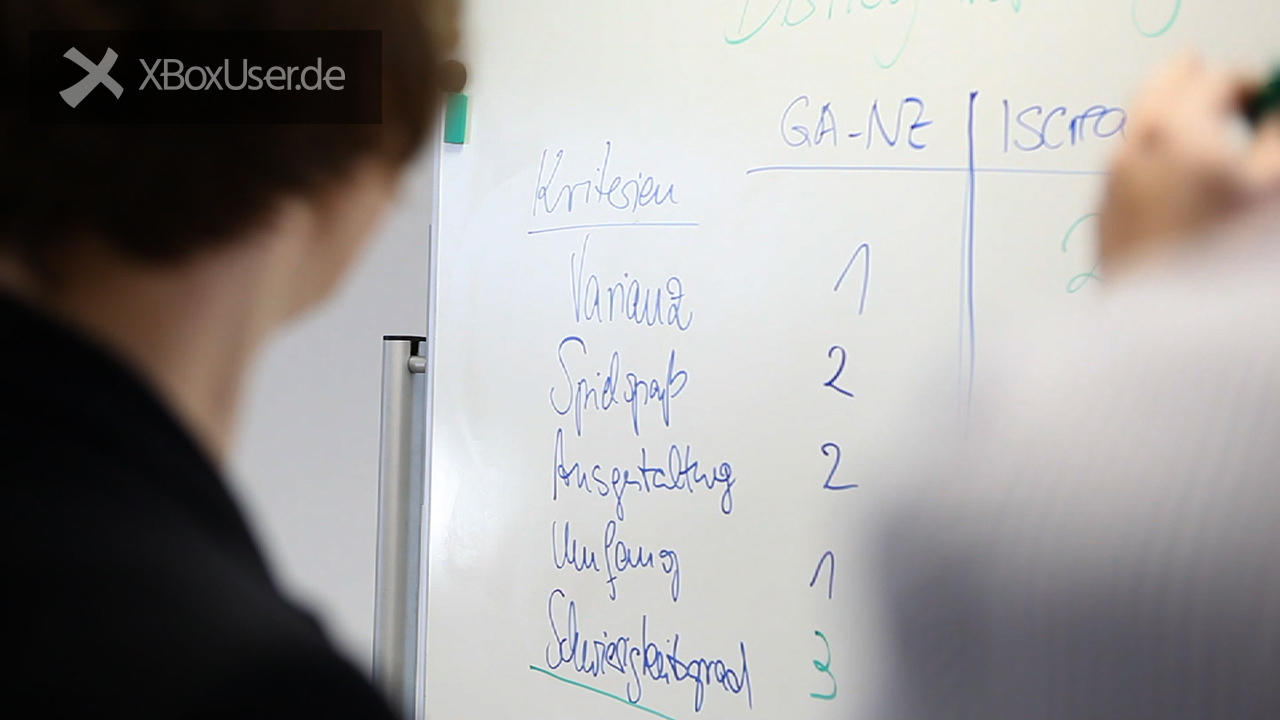 XBoxUser.de
GA-NZ
Kriterien
Varianz 1 2
Spielspaß 2
Ausgestaltung 2
Umfang 1
Schwierigkeitsgrad 3